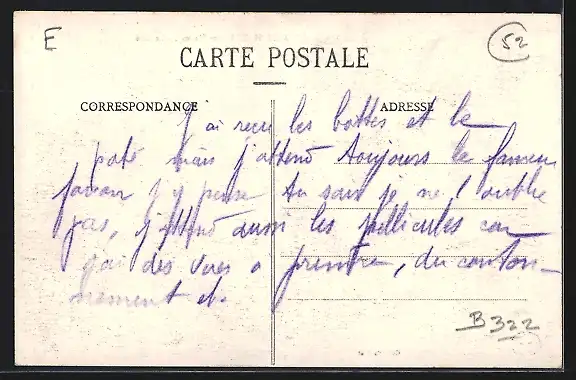 E
52
CARTE POSTALE
CORRESPONDANCE
ADRESSE
J'ai recu les bottes et le
paté mais j'attend toujours le fameu
j'y pense tu sais je ne l'oublie
pas, j'attend aussi les pellicules car
j'ai des vues a prendre, du canton-
nement et.
B322